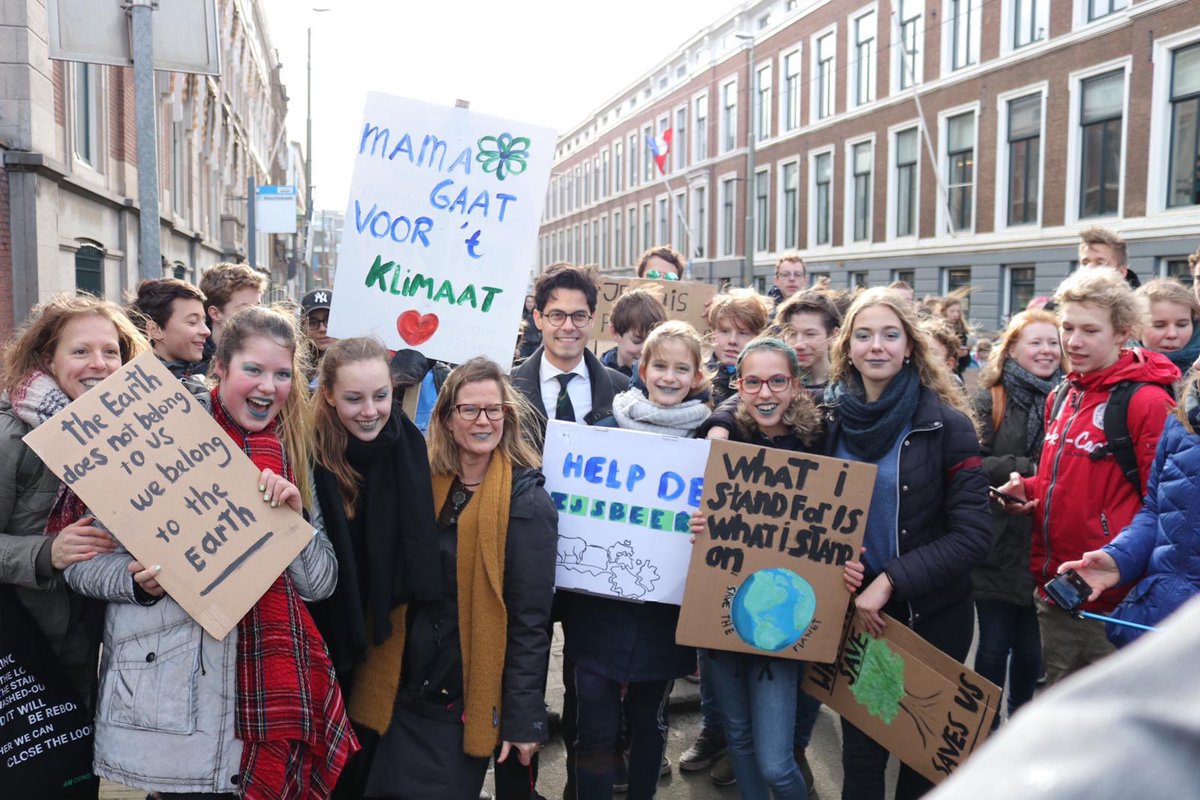 MAMA
GAAT
VOOR 't
KLIMAAT
the Earth
does not belong
to US
we belong
to the
EARTH
HELP DE
IJSBEER
WHAT I
STAND FOR IS
WHAT I STAND
ON
SAVE THE
PLANET
SAVE
SAVES US
THE LO
THE STAIN
WASHED-OUT
IT WILL
BE REBO
WE CAN
CLOSE THE LOO